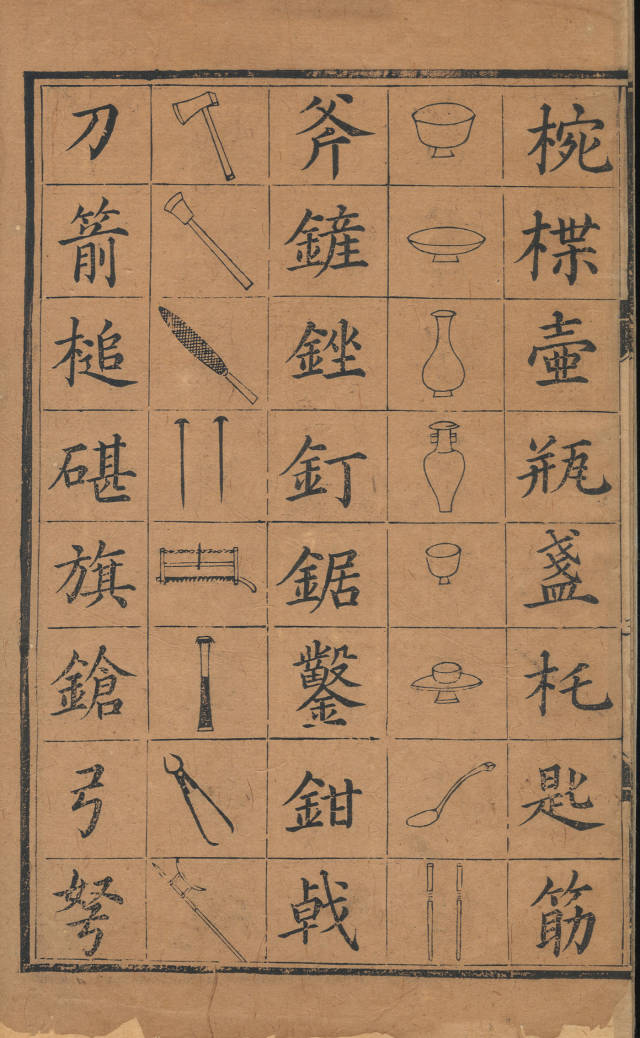 椀楪壺瓶盞杔匙筯
斧鏟銼釘鋸鑿鉗戟
刀箭槌碪旗鎗弓弩